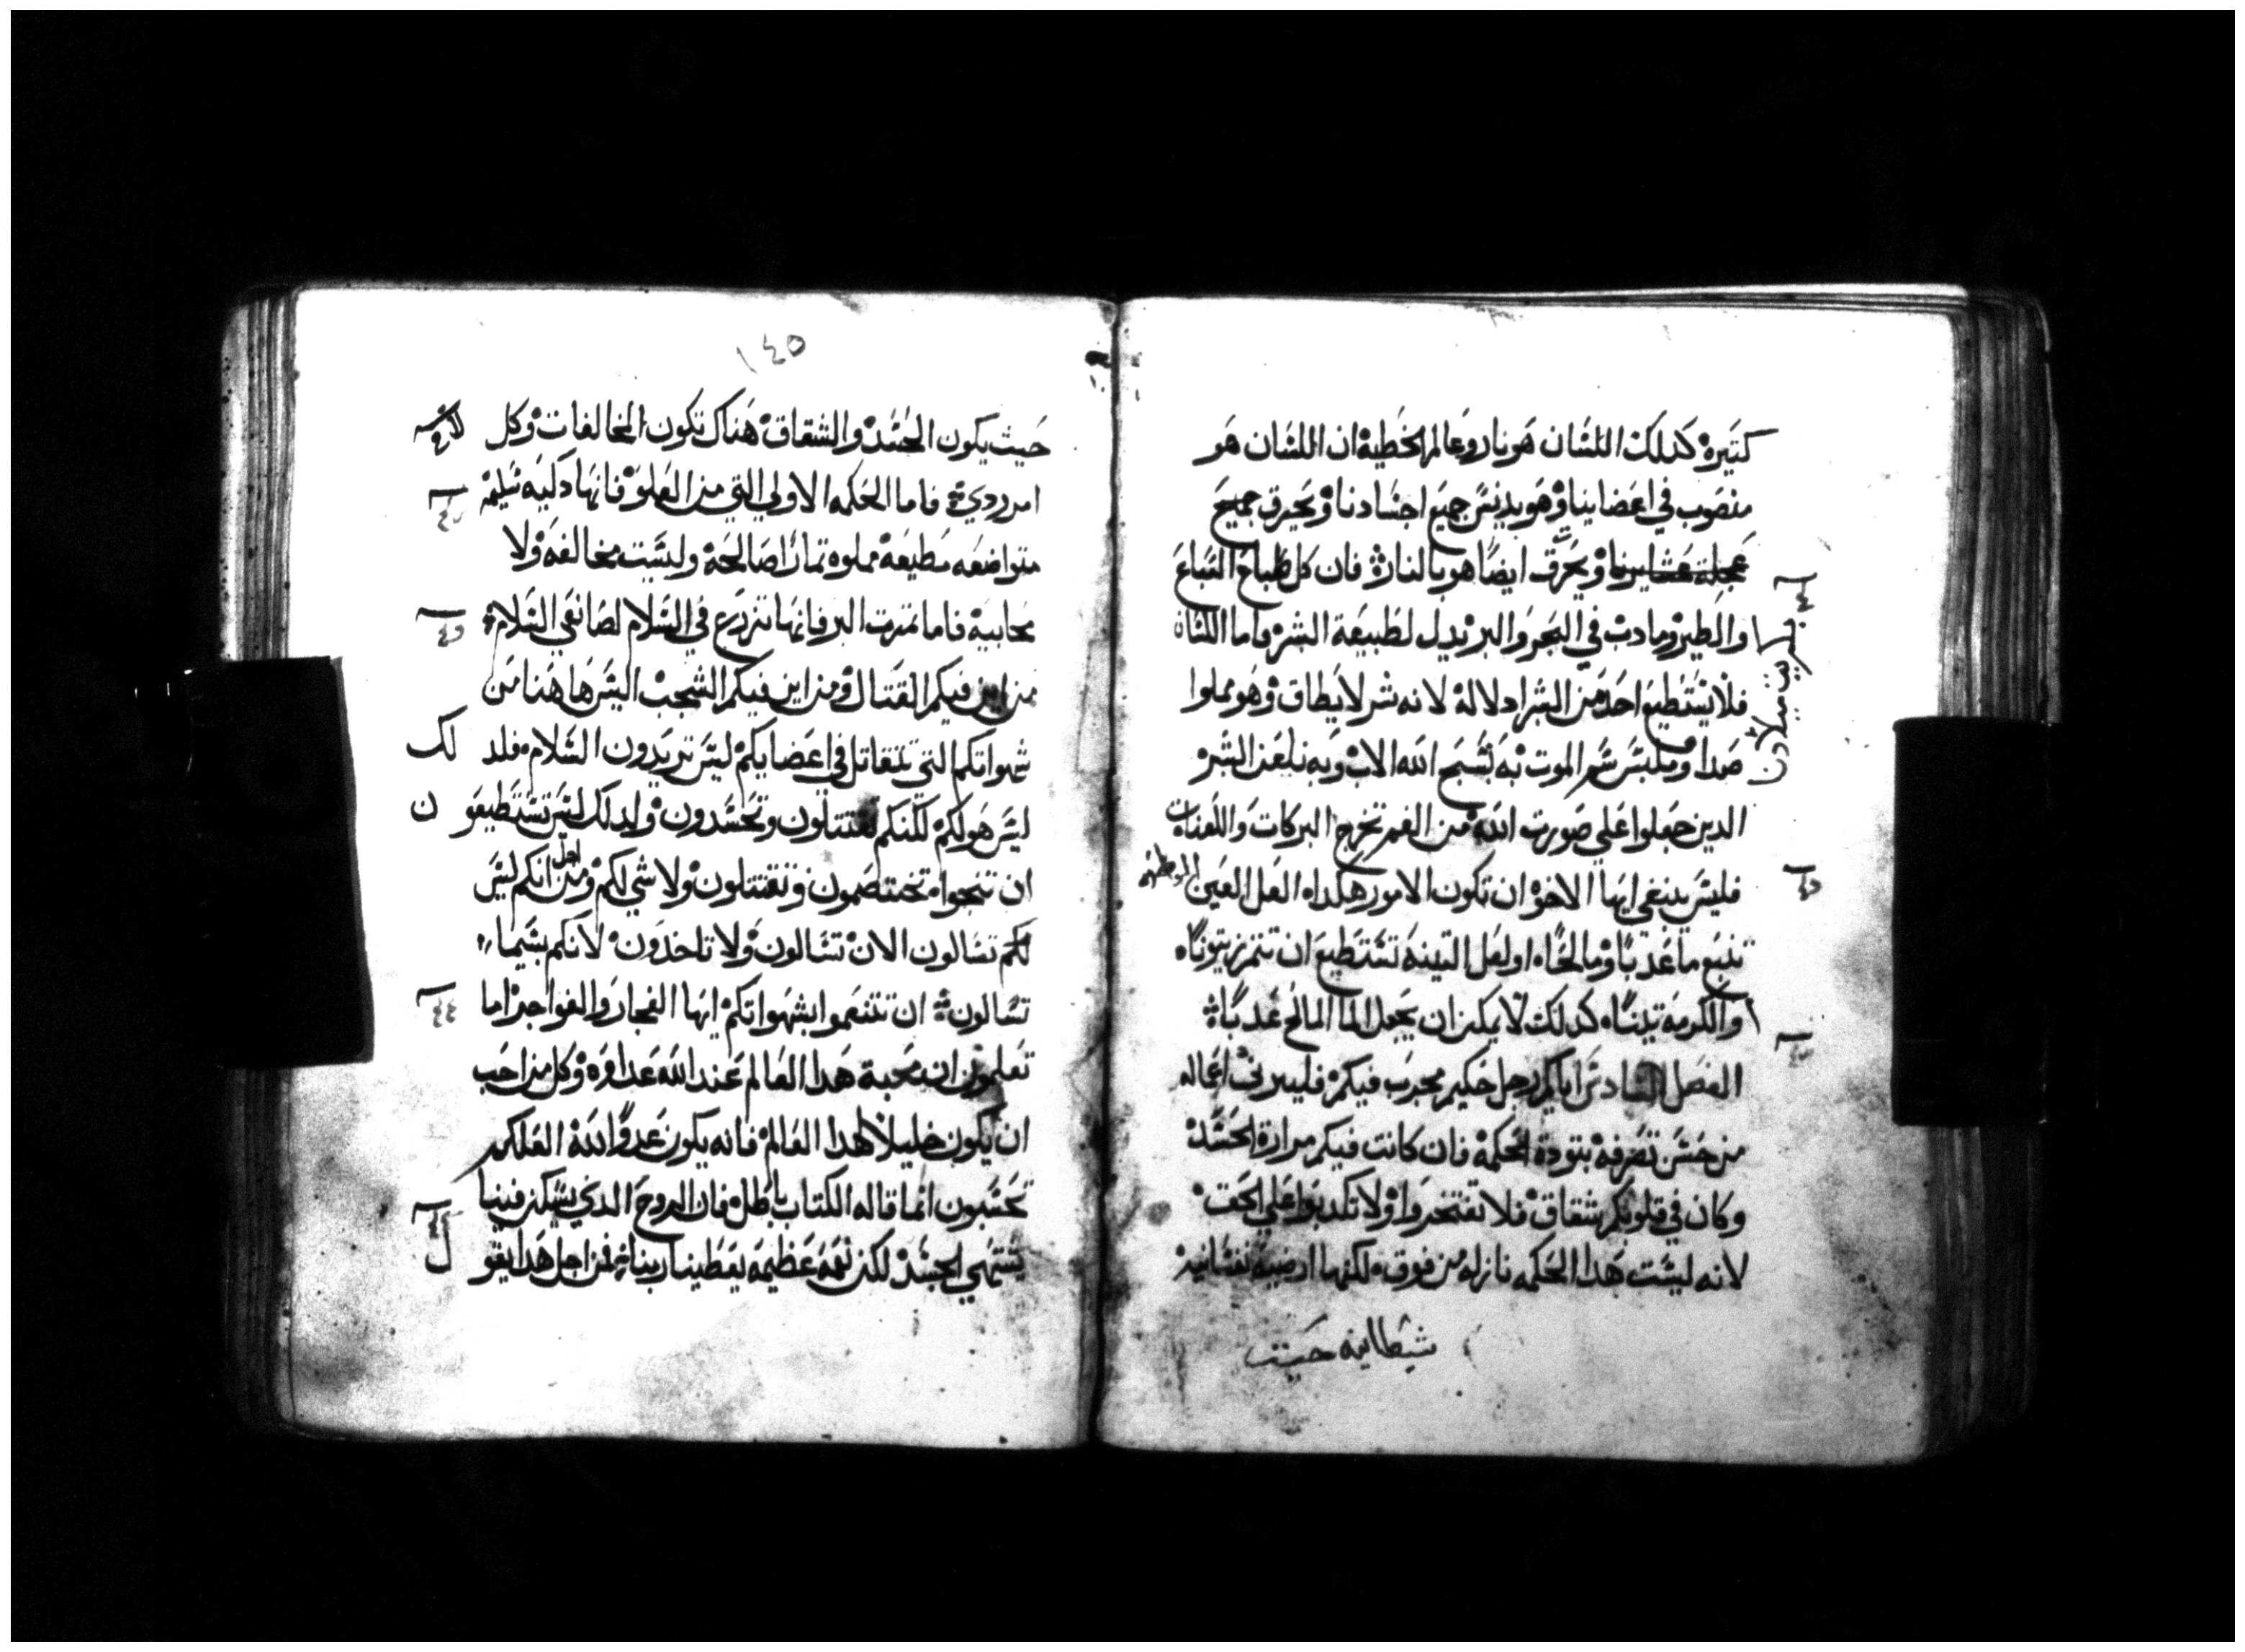 كتيره كدلك اللسان هو نار وعالم الخطيه ان اللسان هو
منصوب في اعضاينا وهو يدنس جميع اجسادنا ويحرق جميع
ويحرق ايضا هو بالنار فان كل طباع السباع
والطير وما دب في البحر والبر تدل لطبيعة البشر واما اللسان
فلا يستطيع احد من البشر ادلاله لانه شر لا يطاق وهو مملوا
شر الموت به نسبح الله الاب وبه نلعن البشر
الدين جعلوا علي صورت الله من الفم تخرج البركات واللعنات
فليس ينبغي ايها الاخوه ان تكون الامور هكدا ه العل العين
تنبع ما عدبا وما مالحا ه او لعل التينه تستطيع ان تتمر زيتونا ه
والكرمه تينا ه كدلك لا يمكن ان يجعل الما المالح عدبا
الفصل السادس اياكم رجل حكيم مجرب فيكم فليرني اعماله
من حسن تصرفه بتودة الحكمه فان كانت فيكم مرارة الحسد
وكان في قلوبكم شقاق فلا تفتخروا ولا تكدبوا علي الحق
لانه ليست هدا الحكمه نازله من فوق لكنها ارضيه نفسانيه
شيطانيه حيت
١٤٥
حيت يكون الحسد والشقاق هناك تكون المخالفات وكل
امر ردي فاما الحكمه الاولي التي من العلو فانها دكيه سليمه
متواضعه مطيعه مملوه تمارا صالحه وليست مخالفه ولا
محابيه فاما تمرت البر فانها تزرع في السلام لصانعي السلام
من اين فيكم القتال ومن اين فيكم الشجب اليس ها هنا من
شهواتكم التي تتقاتل في اعضايكم ليس تريدون السلام فلد لك
ليس هو لكم لكنكم تقتتلون وتحسدون ولدلك ليس تستطيعو ن
ان تنجوا ه تختصمون وتقتتلون ولا شي لكم ومن اجل انكم ليس
لكم تسالون الان تسالون ولا تاخدون لانكم بشيما
تسالون ان تتنعموا بشهواتكم ايها الفجار والفواجر اما
تعلمون ان محبة هدا العالم عند الله عداوه وكل من احب
ان يكون خليلا لهدا العالم فانه يكون عدوا لله العلكم
تحسبون انما قاله الكتاب باطل فان الروح الدي يسكن فينا
يشتهي الحسد لكن نعمه عظيمه يعطينا ربنا فمن اجل هدا يقو ل